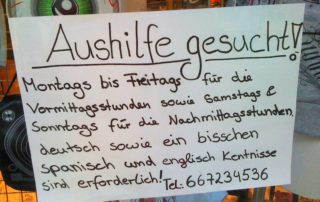 Aushilfe gesucht!
Montags bis Freitags für die
Vormittagsstunden sowie Samstags &
Sonntags für die Nachmittagsstunden,
deutsch sowie ein bisschen
spanisch und englisch Kentnisse
sind erforderlich! Tel: 667234536